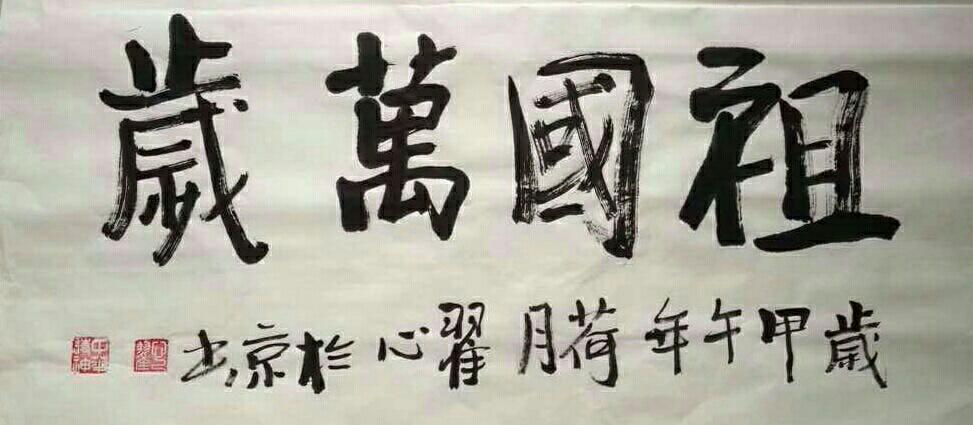 祖國萬歲
歲甲午年荷月翟心於京书